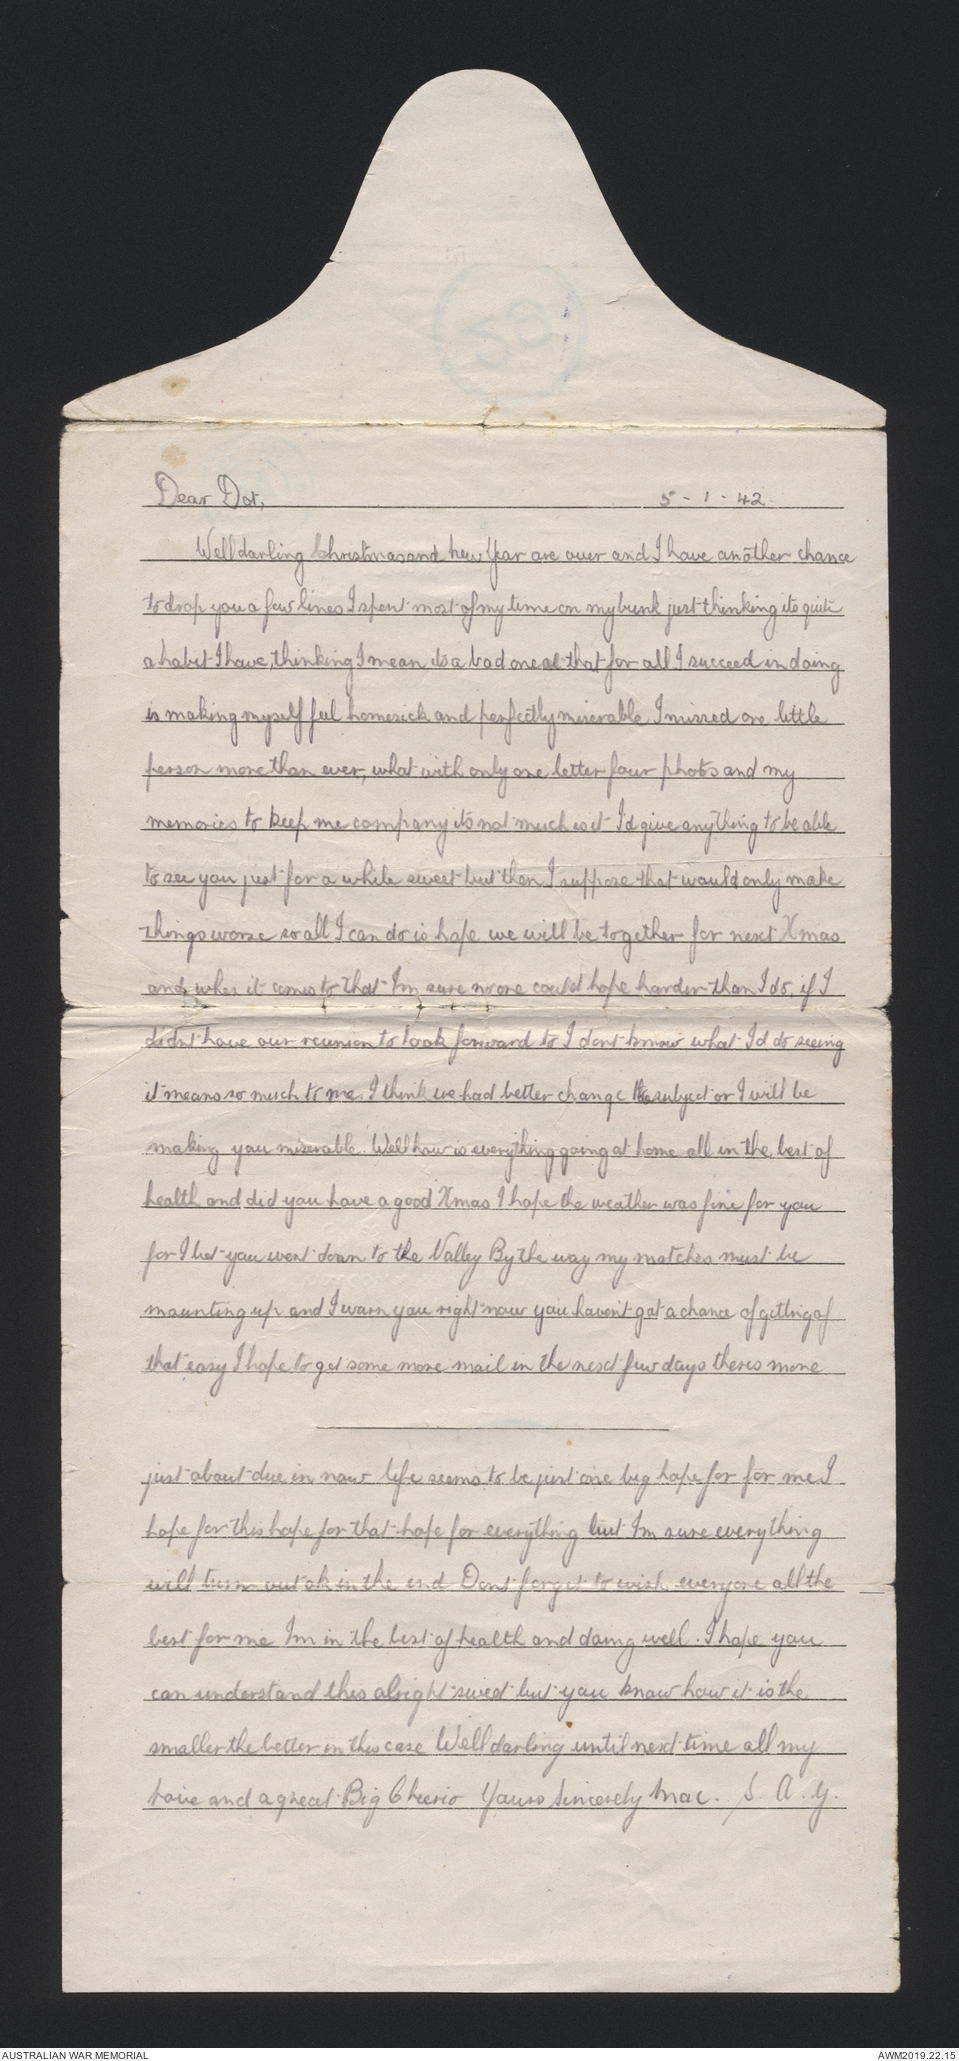 Dear Dot, 5 - 1 - 42
Well darling Christmas and New Year are over and I have another chance
to drop you a few lines I spent most of my time on my bunk just thinking its quite
a habit I have, thinking I mean its a bad one at that for all I succeed in doing
is making myself feel homesick and perfectly miserable I missed one little
person more than ever, what with only one letter four photos and my
memories to keep me company its not much is it I'd give anything to be able
to see you just for a while sweet but then I suppose that would only make
things worse so all I can do is hope we will be together for next Xmas
and when it comes to that Im sure no one could hope harder than I do, if I
didnt have our reunion to look forward to I dont know what Id do seeing
it means so much to me. I think we had better change the subject or I will be
making you miserable. Well how is everything going at home all in the best of
health and did you have a good Xmas I hope the weather was fine for you
for I bet you went down to the Valley By the way my matches must be
mounting up and I warn you right now you haven't got a chance of getting of
that easy I hope to get some more mail in the next few days theres more
just about due in now life seems to be just one big hope for for me I
hope for this hope for that hope for everything but Im sure everything
will turn out ok in the end Dont forget to wish everyone all the
best for me Im in the best of health and doing well. I hope you
can understand this alright sweet but you know how it is the
smaller the better in this case Well darling until next time all my
love and a great Big Cheerio Yours Sincerely Mac. S. A. Y.
AUSTRALIAN WAR MEMORIAL AWM2019.22.15